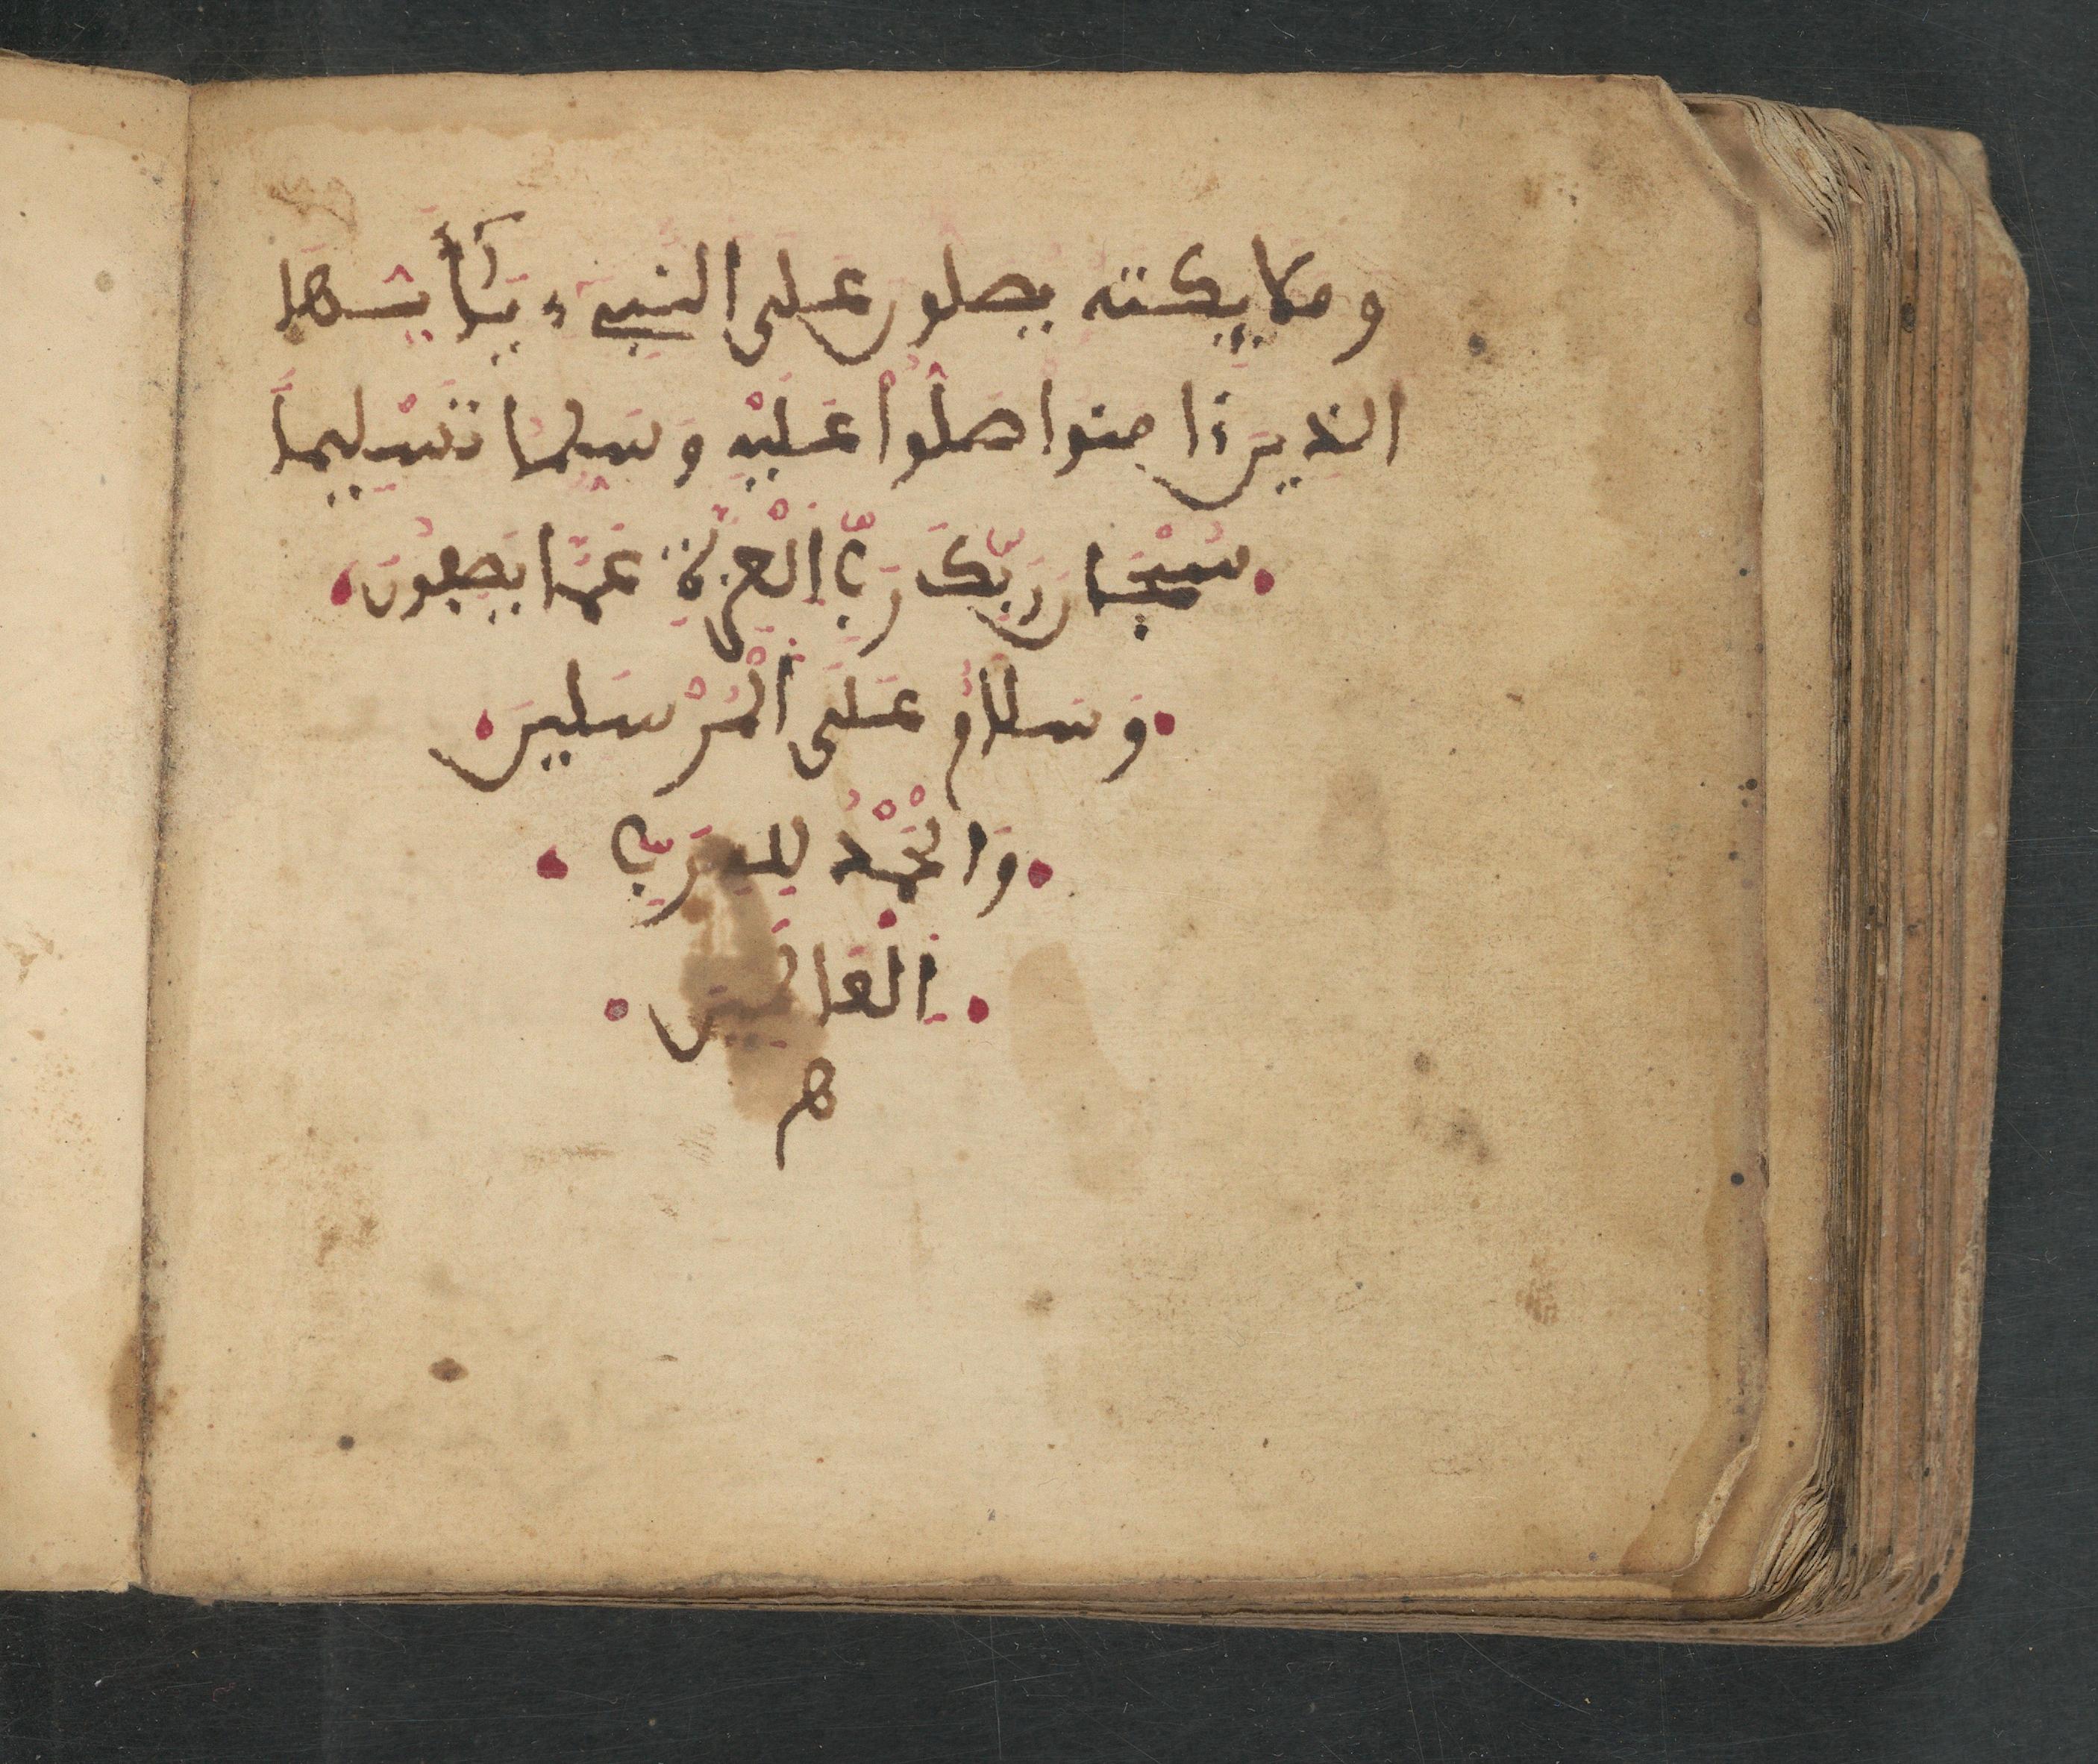 وملايكته يصلون على النبيء يـأيها
الذين ءامنوا صلوا عليه وسلموا تسليما
سُبْحَان رَبِّكَ رَبِّ الْعِزَّةِ عَمَّا يَصِفُونَ
وَسَلامٌ عَلَى الْمُرْسَلِينَ
وَالْحَمْدُ لِلهِ رَبِّ
الْعَالَمِينَ